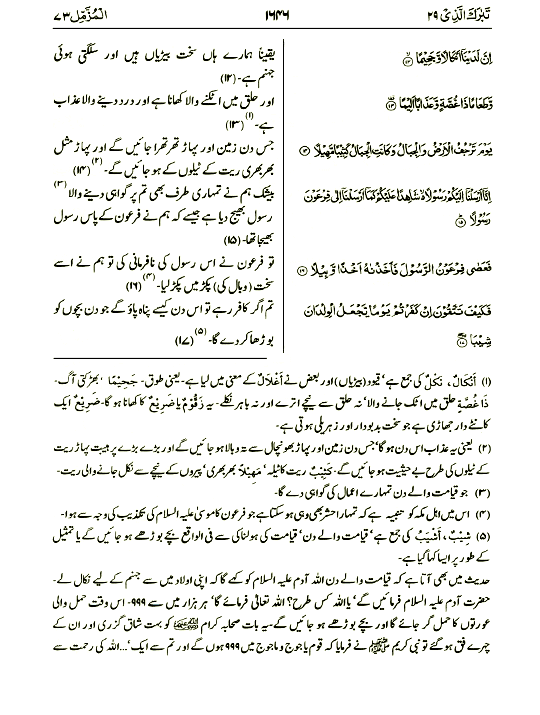 تَبٰرَكَ الَّذِیْ ۲۹
۱۶۴۶
الْمُزَّمِّل ۷۳
اِنَّ لَدَيْنَاۤ اَنْكَالًا وَّجَحِيْمًا ۝۱۲
وَّطَعَامًا ذَا غُصَّةٍ وَّعَذَابًا اَلِيْمًا ۝۱۳
يَوْمَ تَرْجُفُ الْاَرْضُ وَالْجِبَالُ وَكَانَتِ الْجِبَالُ كَثِيْبًا مَّهِيْلًا ۝۱۴
اِنَّاۤ اَرْسَلْنَاۤ اِلَيْكُمْ رَسُوْلًا ۙ شَاهِدًا عَلَيْكُمْ كَمَاۤ اَرْسَلْنَاۤ اِلٰى فِرْعَوْنَ
رَسُوْلًا ۝۱۵
فَعَصٰى فِرْعَوْنُ الرَّسُوْلَ فَاَخَذْنٰهُ اَخْذًا وَّبِيْلًا ۝۱۶
فَكَيْفَ تَتَّقُوْنَ اِنْ كَفَرْتُمْ يَوْمًا يَّجْعَلُ الْوِلْدَانَ
شِيْبَا ۝۱۷
یقیناً ہمارے ہاں سخت بیڑیاں ہیں اور سلگتی ہوئی
جہنم ہے۔ (۱۲)
اور حلق میں اٹکنے والا کھانا ہے اور درد دینے والا عذاب
ہے۔ (۱) (۱۳)
جس دن زمین اور پہاڑ تھرتھرا جائیں گے اور پہاڑ مثل
بھربھری ریت کے ٹیلوں کے ہو جائیں گے۔ (۲) (۱۴)
بیشک ہم نے تمہاری طرف بھی تم پر گواہی دینے والا (۳)
رسول بھیج دیا ہے جیسے کہ ہم نے فرعون کے پاس رسول
بھیجا تھا۔ (۱۵)
تو فرعون نے اس رسول کی نافرمانی کی تو ہم نے اسے
سخت (وبال کی) پکڑ میں پکڑ لیا۔ (۴) (۱۶)
تم اگر کافر رہے تو اس دن کیسے پناہ پاؤ گے جو دن بچوں کو
بوڑھا کر دے گا۔ (۵) (۱۷)
(۱) اَنْكَالٌ، نِكْلٌ کی جمع ہے، قیود (بیڑیاں) اور بعض نے اَغْلَالٌ کے معنی میں لیا ہے۔ یعنی طوق۔ جَحِيْمًا، بھڑکتی آگ۔
ذَا غُصَّةٍ حلق میں اٹک جانے والا، نہ حلق سے نیچے اترے اور نہ باہر نکلے۔ یہ زَقُّوْمٌ یا ضَرِيْعٌ کا کھانا ہو گا۔ ضَرِيْعٌ ایک
کانٹے دار جھاڑی ہے جو سخت بدبودار اور زہریلی ہوتی ہے۔
(۲) یعنی یہ عذاب اس دن ہو گا، جس دن زمین اور پہاڑ بھونچال سے تہ و بالا ہو جائیں گے اور بڑے بڑے پر ہیبت پہاڑ ریت
کے ٹیلوں کی طرح بے حیثیت ہو جائیں گے۔ كَثِيْبٌ ریت کا ٹیلہ، مَهِيْلًا بھربھری، پیروں کے نیچے سے نکل جانے والی ریت۔
(۳) جو قیامت والے دن تمہارے اعمال کی گواہی دے گا۔
(۴) اس میں اہل مکہ کو تنبیہ ہے کہ تمہارا حشر بھی وہی ہو سکتا ہے جو فرعون کا موسیٰ علیہ السلام کی تکذیب کی وجہ سے ہوا۔
(۵) شِيْبٌ، اَشْيَبُ کی جمع ہے، قیامت والے دن، قیامت کی ہولناکی سے فی الواقع بچے بوڑھے ہو جائیں گے یا تمثیل
کے طور پر ایسا کہا گیا ہے۔
حدیث میں بھی آتا ہے کہ قیامت والے دن اللہ آدم علیہ السلام کو کہے گا کہ اپنی اولاد میں سے جہنم کے لیے نکال لے۔
حضرت آدم علیہ السلام فرمائیں گے، یا اللہ کس طرح؟ اللہ تعالیٰ فرمائے گا، ہر ہزار میں سے ۹۹۹۔ اس وقت حمل والی
عورتوں کا حمل گر جائے گا اور بچے بوڑھے ہو جائیں گے۔ یہ بات صحابہ کرام رضی اللہ عنہم کو بہت شاق گزری اور ان کے
چہرے فق ہو گئے تو نبی کریم ﷺ نے فرمایا کہ قوم یاجوج و ماجوج میں ۹۹۹ ہوں گے اور تم سے ایک‘... اللہ کی رحمت سے